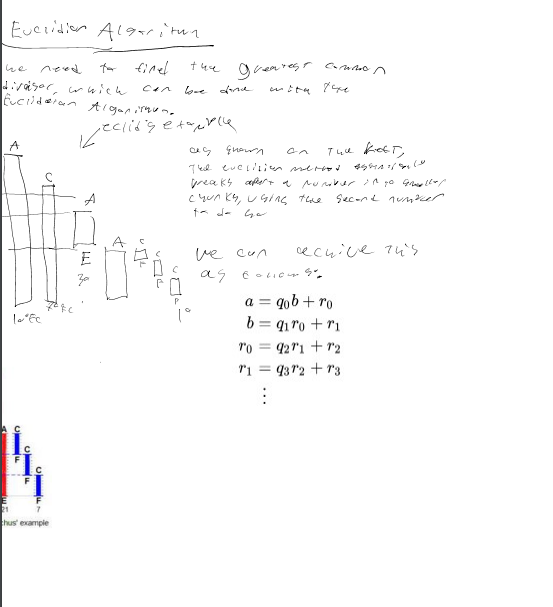 Euclidian Algoritum
we need to find the greatest common
divisor, which can be done with the
Euclideian Algoritum.
eclid's example
A
C
A
E
A
C
F
C
F
C
F
as shown on the
the euclidian method
breaks apart a number into smaller
chunks, using the second number
to do so
we can achive this
as
a = q₀b + r₀
b = q₁r₀ + r₁
r₀ = q₂r₁ + r₂
r₁ = q₃r₂ + r₃
⋮
A C
C
F
C
F
E F
21 7
chus' example